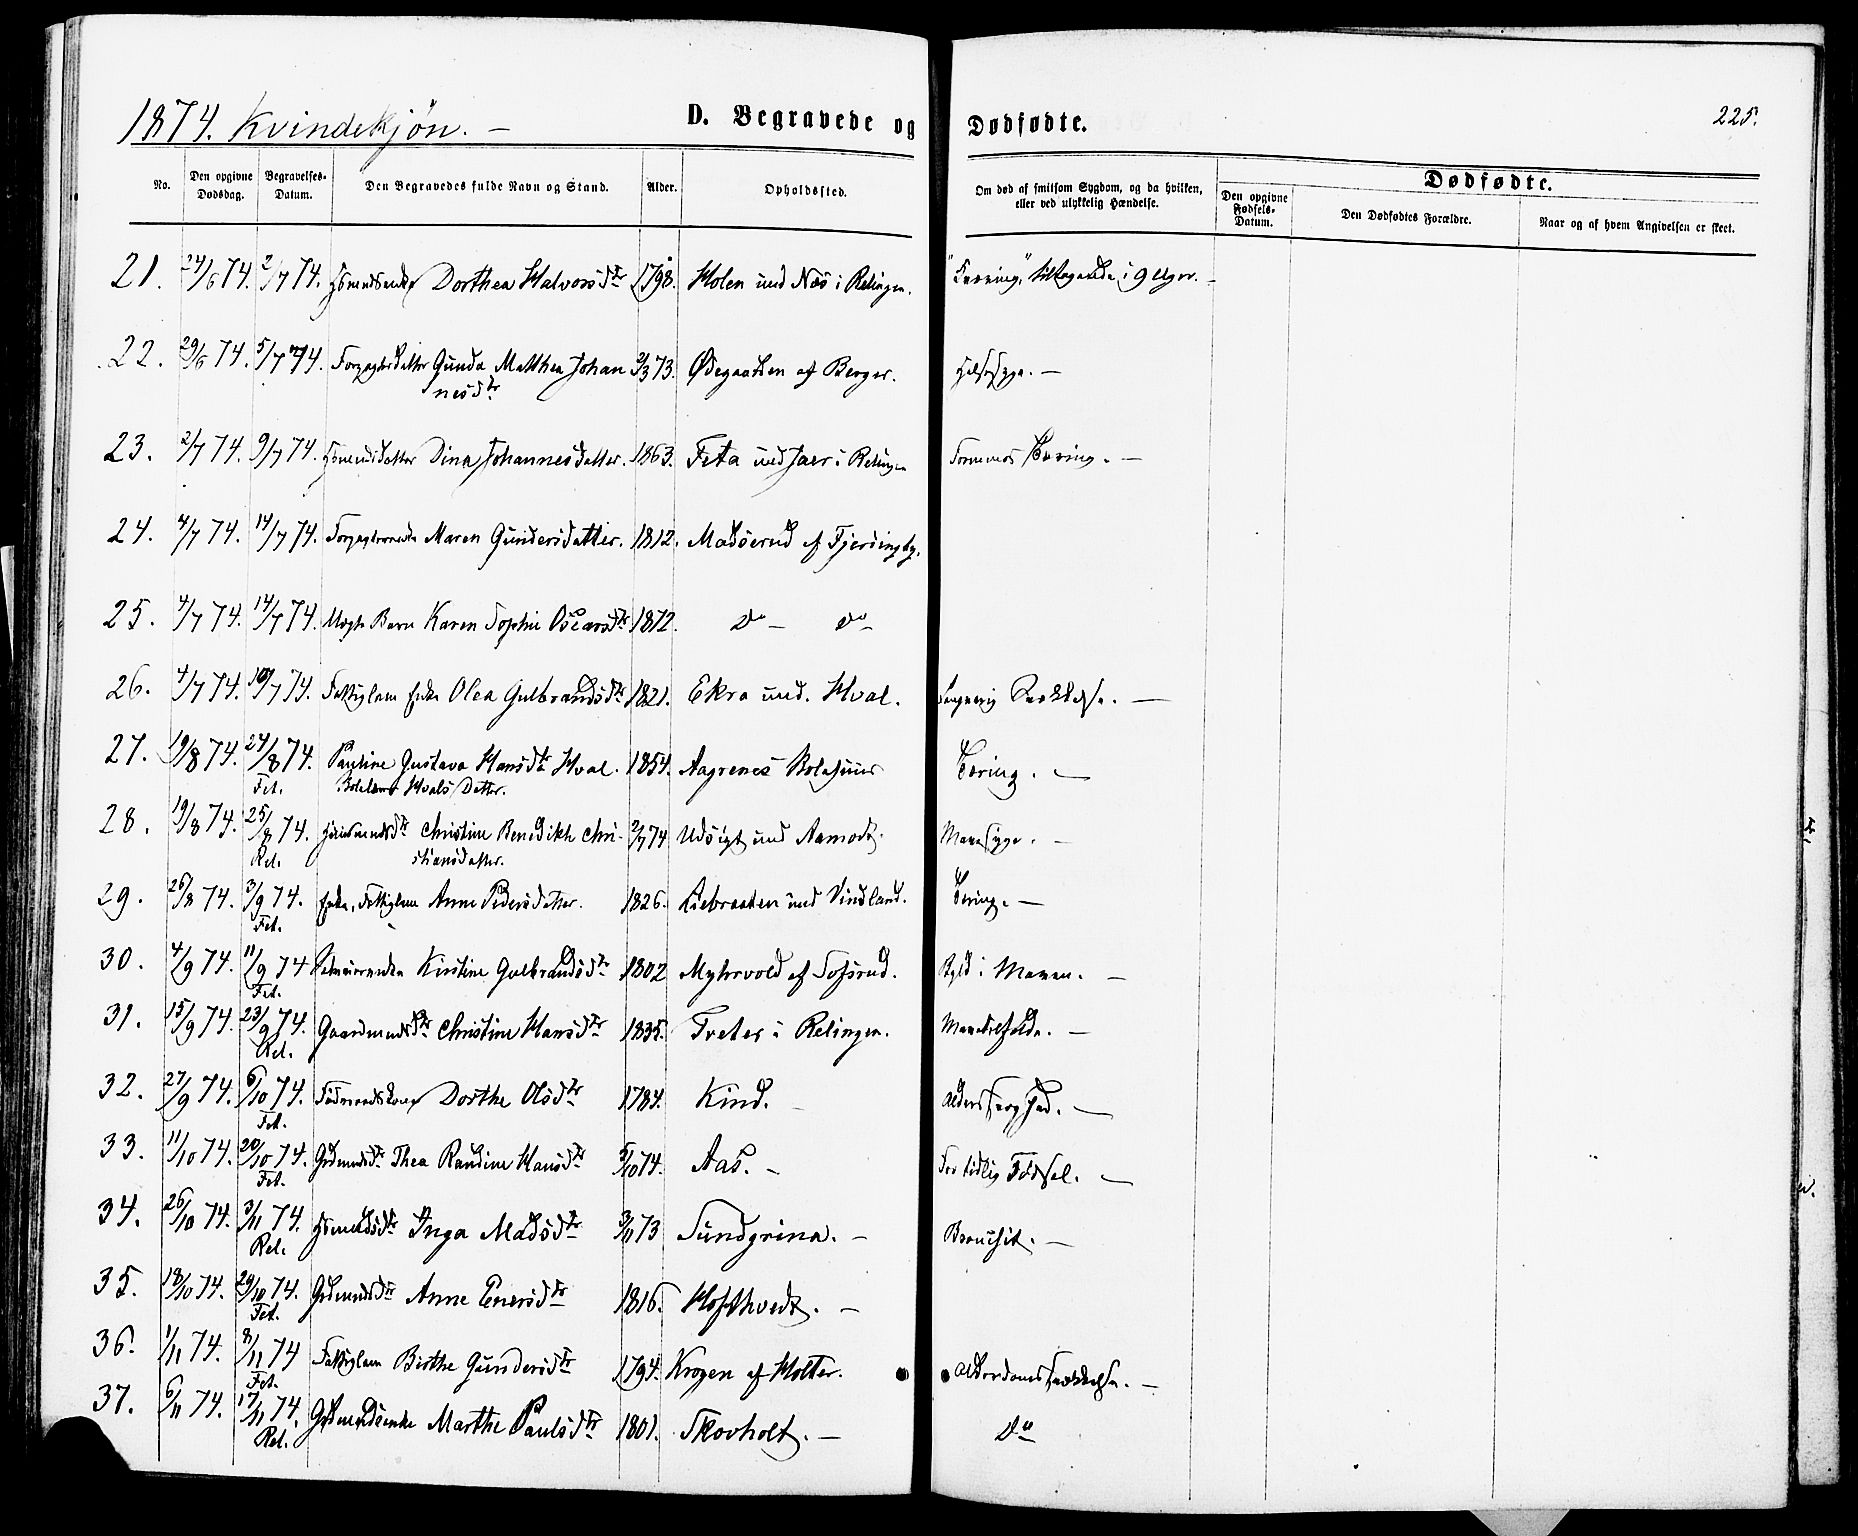 1874. Kvindekjön. — D. Begravede og Dødfødte. 225.
No. Den opgivne Dødsdag. Begravelses-Datum. Den Begravedes fulde Navn og Stand. Alder. Opholdssted. Om død af smitsom Sygdom, og da hvilken, eller ved ulykkelig Hændelse. Dødfødte.
Den opgivne Fødsels-Datum. Den Dødfødtes Forældre. Naar og af hvem Angivelsen er skeet.
21. 24/6 74. 2/7 74. Dorthea Halvorsdtr 1798. Holen und Næs i Relingen. "Tæring" i 9 Uger. —
22. 29/6 74. 5/7 74. Gunda Matthea Johan 2/3 73. Ødegaarden af Berger. —
nesdtr
23. 2/7 74. 9/7 74. Hsmendsdatter Dina Johannesdatter. 1863. Feta und Jaer i Relingen Tæring. —
24. 4/7 74. 14/7 74. Maren Gundersdatter. 1812. Madserud af Fjerdingby.
25. 4/7 74. 14/7 74. Uægte Barn Karen Sophie Oscarsdtr 1872. Do — Do —
26. 4/7 74. 10/7 74. Fattiglem Enke Olea Gulbrandsdtr 1821. Ekra und. Hval. —
27. 19/8 74. 24/8 74. Pauline Gustava Hansdtr Hval. 1854. Tæring. —
Fet. Hvals Datter.
28. 19/8 74. 25/8 74. Christine Benedikte Chri- 2/7 74 Udsigt und Aamodt. Mavesyge. —
Rel. stiansdatter.
29. 26/8 74. 3/9 74. Enke, Fattiglem Anne Pedersdatter. 1826. und Vindland. Tæring. —
Fet.
30. 4/9 74. 11/9 74 Kirstine Gulbrandsdtr 1802 Myhrvold af Tofsrud. Byld i Maven. —
Fet.
31. 15/9 74. 23/9 74. Gaardmandsdtr Christine Hansdtr 1835. Treter i Relingen. —
Rel.
32. 27/9 74. 6/10 74. Dorthe Olsdtr 1784. Kind. —
Fet.
33. 11/10 74. 20/10 74. Grdmndsdtr Thea Randine Hansdtr 5/10 74. Aas. — For tidlig Födsel. —
Fet.
34. 26/10 74. 3/11 74. Hsmendsdtr Inga Madsdtr 3/11 73 Sundgrina. — Bronchit. —
Rel.
35. 18/10 74. 29/10 74. Grdmndsdtr Anne Enersdtr 1816. Hofthvedt. —
Fet.
36. 1/11 74. 8/11 74 Fattiglem Birthe Gundersdtr 1794. Krogen af Holter. Alderdomssvækkelse. —
Fet.
37. 6/11 74. 17/11 74. Grdmandsenke Marthe Paulsdtr 1801. Skovholt. — Do
Rel.